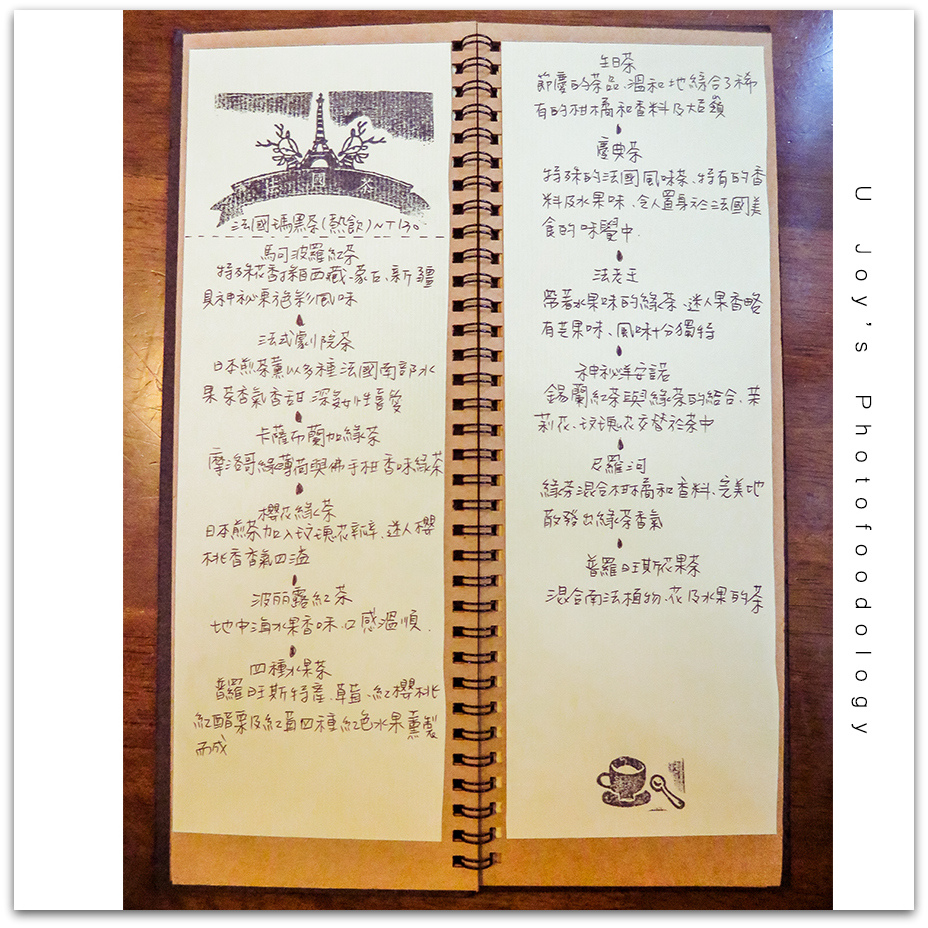 法國茶
法國瑪黑茶(熱飲)NT130
馬可波羅紅茶
特殊花香採自西藏、蒙古、新疆
具神秘東色彩風味
法式劇院茶
日本煎茶薰以多種法國南部水
果茶香氣香甜 深受女性喜愛
卡薩布蘭加綠茶
摩洛哥綠薄荷與佛手柑香味綠茶
櫻花綠茶
日本煎茶加入玫瑰花瓣、迷人櫻
桃香香氣四溢
波麗露紅茶
地中海水果香味、口感溫順.
四種水果茶
普羅旺斯特產、草莓、紅櫻桃
紅醋栗及紅莓四種紅色水果薰製
而成
生日茶
節慶的茶品、溫和地綜合了稀
有的柑橘和香料及大豆類
慶典茶
特殊的法國風味茶、特有的香
料及水果味、令人置身於法國美
食的味覺中.
法老王
帶著水果味的綠茶、迷人果香略
有芒果味、風味十分獨特
神祕安諾
錫蘭紅茶與綠茶的結合、茉
莉花、玫瑰花交替於茶中
尼羅河
綠茶混合柑橘和香料、完美地
散發出綠茶香氣
普羅旺斯花果茶
混合南法植物、花及水果的茶
U Joy's Photofoodology